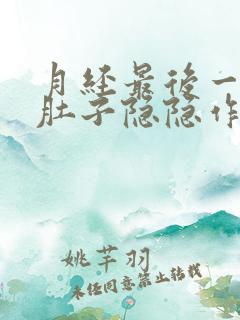 月经最后一
肚子隐隐作
姚芊羽
未经同意禁止转载